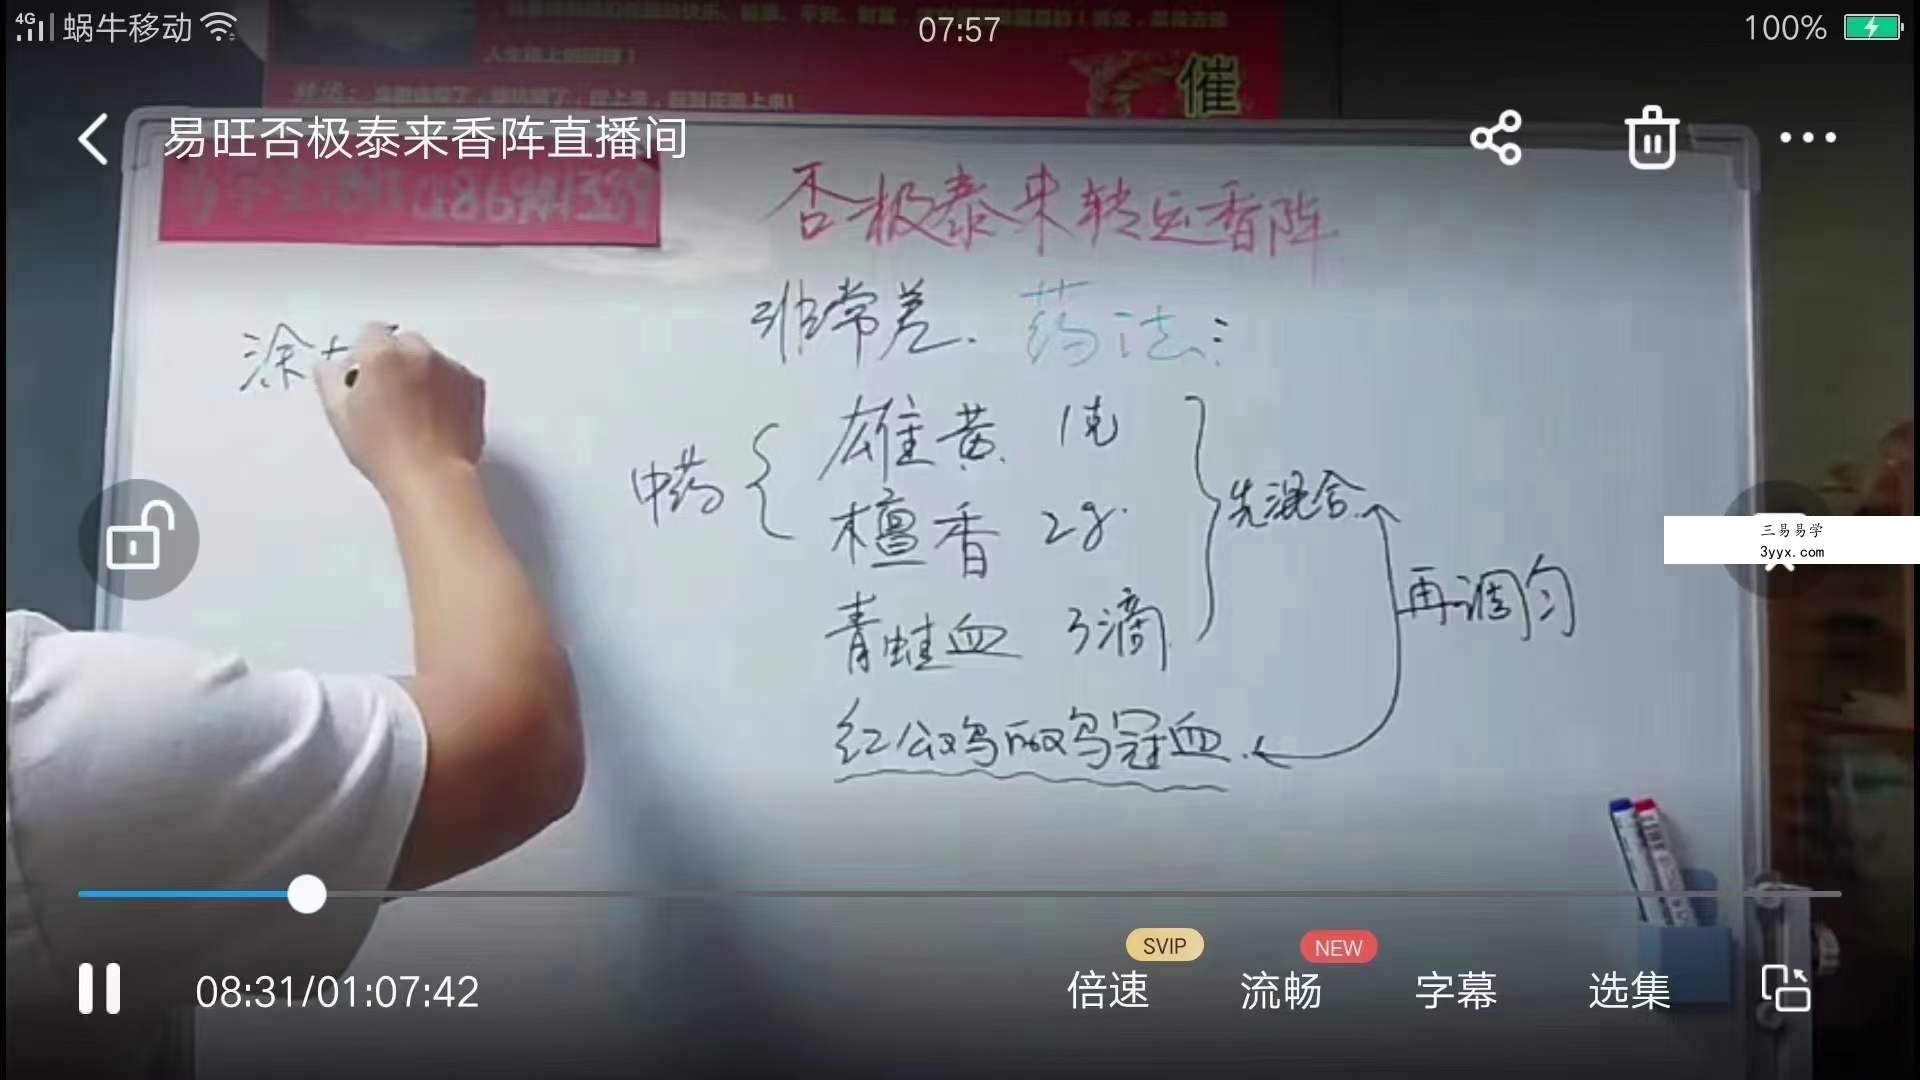 4G 蜗牛移动 07:57 100%
人生路上的团圆！
催
易旺否极泰来香阵直播间
否极泰来转运香阵
非常差. 药法:
涂
中药 { 雄黄 1克
檀香 2g.
青蛙血 3滴
} 先混合
再调匀
红公鸡的鸡冠血.
三易易学
3yyx.com
08:31/01:07:42
SVIP
倍速
NEW
流畅
字幕
选集